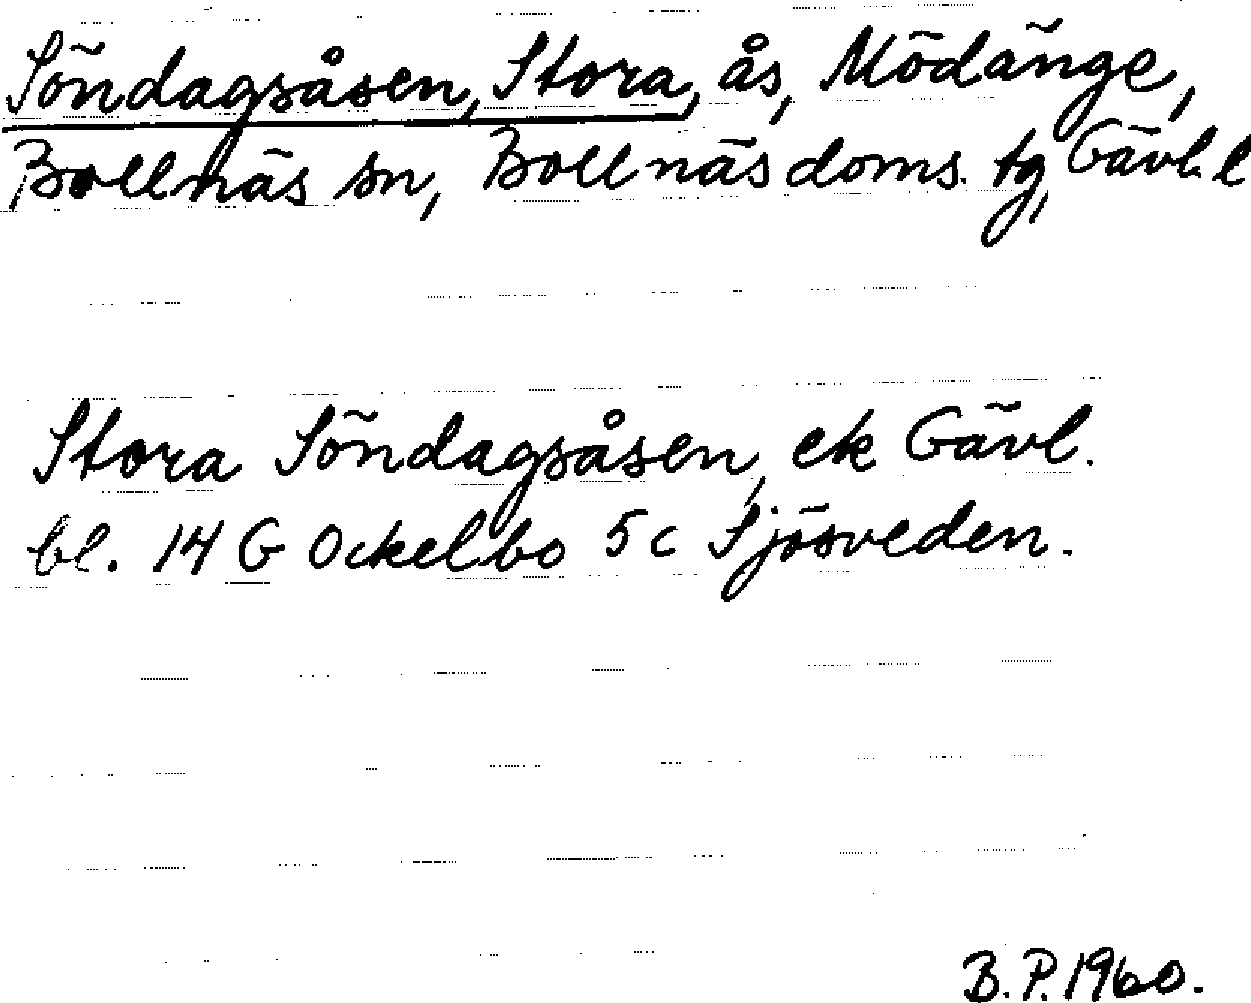 Söndagsåsen, Stora, ås, Mödänge,
Bollnäs sn, Bollnäs doms. tg, Gävl. l
Stora Söndagsåsen, ek Gävl.
bl. 14 G Ockelbo 5 c Sjösveden.
B.P. 1960.